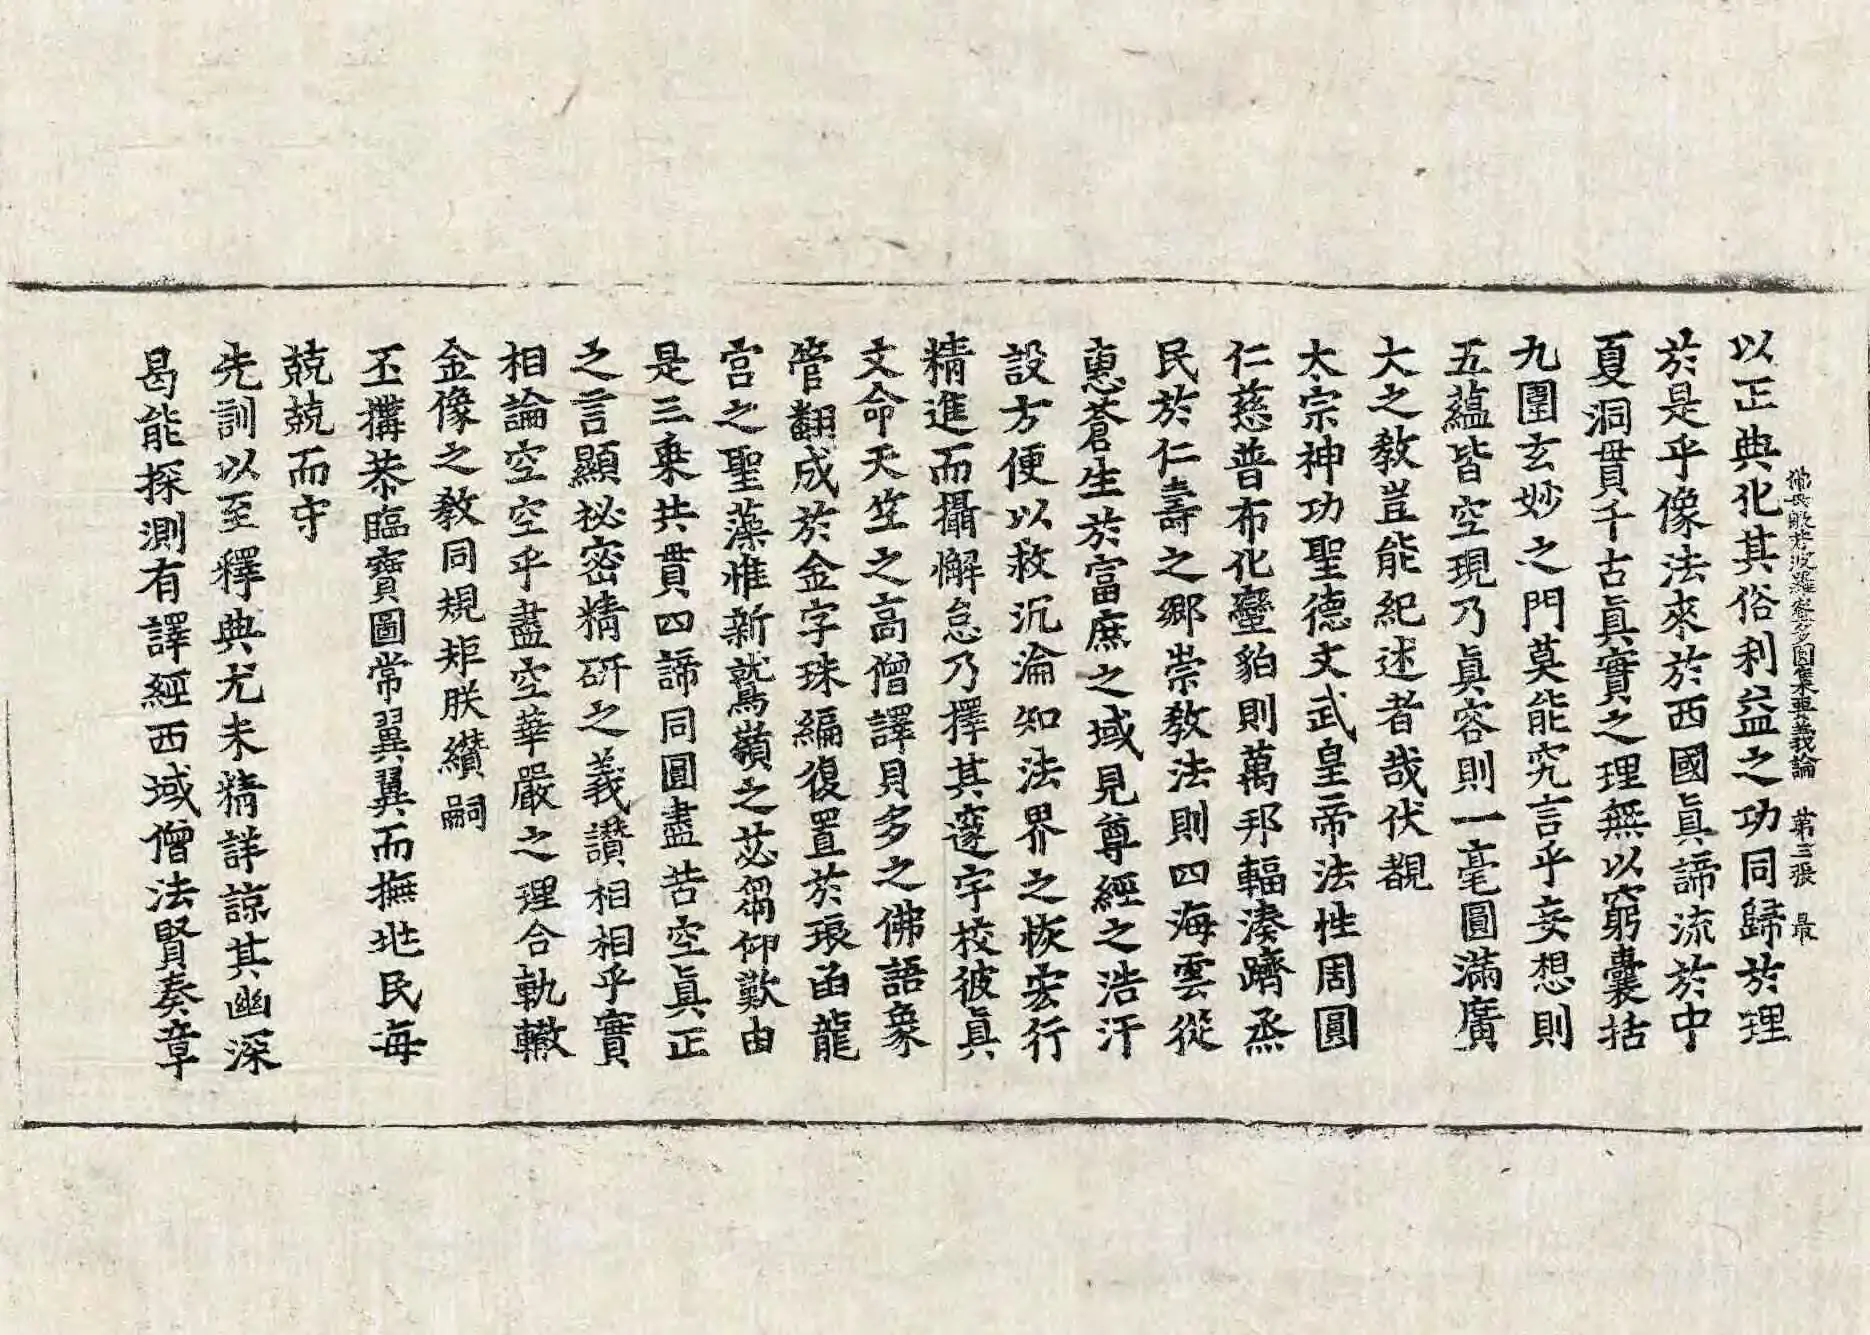 佛母般若波羅蜜多圓集要義論 第三張 最
以正典化其俗利益之功同歸於理
於是乎像法來於西國眞諦流於中
夏洞貫千古眞實之理無以窮囊括
九圍玄妙之門莫能究言乎妄想則
五蘊皆空現乃眞容則一毫圓滿廣
大之教豈能紀述者哉伏覩
太宗神功聖德文武皇帝法性周圓
仁慈普布化蠻貊則萬邦輻湊躋烝
民於仁壽之鄉崇教法則四海雲從
惠蒼生於富庶之域見尊經之浩汗
設方便以救沉淪知法界之恢宏行
精進而攝懈怠乃擇其邃宇校彼眞
文命天竺之高僧譯貝多之佛語象
管翻成於金字珠編復置於琅函龍
宮之聖藻惟新鷲嶺之苾蒭仰歎由
是三乘共貫四諦同圓盡苦空眞正
之言顯祕密精研之義讚相相乎實
相論空空乎盡空華嚴之理合軌轍
金像之教同規矩朕纘嗣
丕搆恭臨寶圖常翼翼而撫兆民每
兢兢而守
先訓以至釋典尤未精詳諒其幽深
曷能探測有譯經西域僧法賢奏章